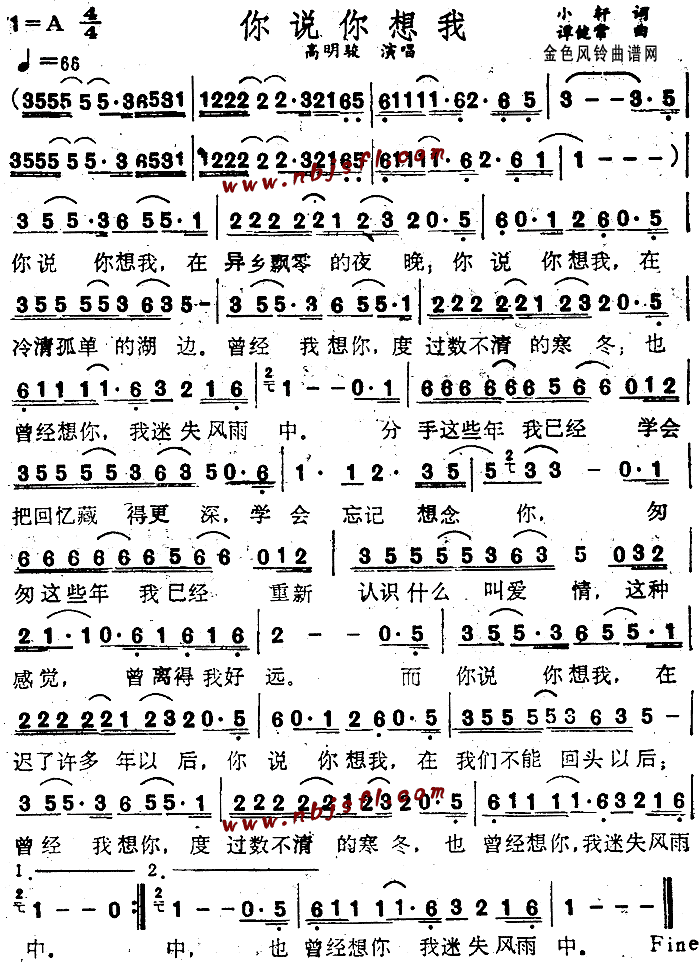 1=A 4/4 你说你想我 小轩 词
谭健常 曲
♩=66 高明骏 演唱 金色风铃曲谱网
(3555 5 5·36531 | 1222 2 2·32165 | 61111·62·6 5 | 3 - - 3·5 |
3555 5 5·3 6531 | 1222 2 2·32165 | 61111·62·61 | 1 - - - )
www.nbjsfl.com
3 55·3655·1 | 222 221 23 20·5 | 60·1 260·5 |
你说 你想我，在 异乡飘零 的夜 晚；你 说 你想我，在
355 553 635- | 3 55·3 655·1 | 222 221 2320·5 |
冷清孤单 的湖 边。曾经 我想你，度 过数不清 的寒 冬；也
611 11·63216 | 2 1 - - 0·1 | 666 666566 012 |
曾经想你，我迷失风雨 中。 分 手这些年 我已经 学会
355 553 63 50·6 | 1· 1 2· 35 | 5 2 33 - 0·1 |
把回忆藏 得更 深，学会 忘记 想念 你， 匆
666 666566 012 | 355 55363 5 032 |
匆这些年 我已经 重新 认识什么 叫爱 情，这种
21·10·61616 | 2 - - 0·5 | 3 55·3655·1 |
感觉， 曾离得我好 远。 而 你说 你想我，在
222 221 2320·5 | 60·1 260·5 | 355 553635- |
迟了许多 年以 后，你 说 你想我，在我们不能 回头以后；
3 55·3 655·1 | 222 221 2320·5 | 611 11·63216 |
www.nbjsfl.com
曾经 我想你，度 过数不清 的寒冬，也 曾经想你，我迷失风雨
1. 2.
2 1 - - 0 :‖ 2 1 - - 0·5 | 611 11·63216 | 1 - - - ‖
中。 中，也 曾经想你 我迷失风雨 中。 Fine